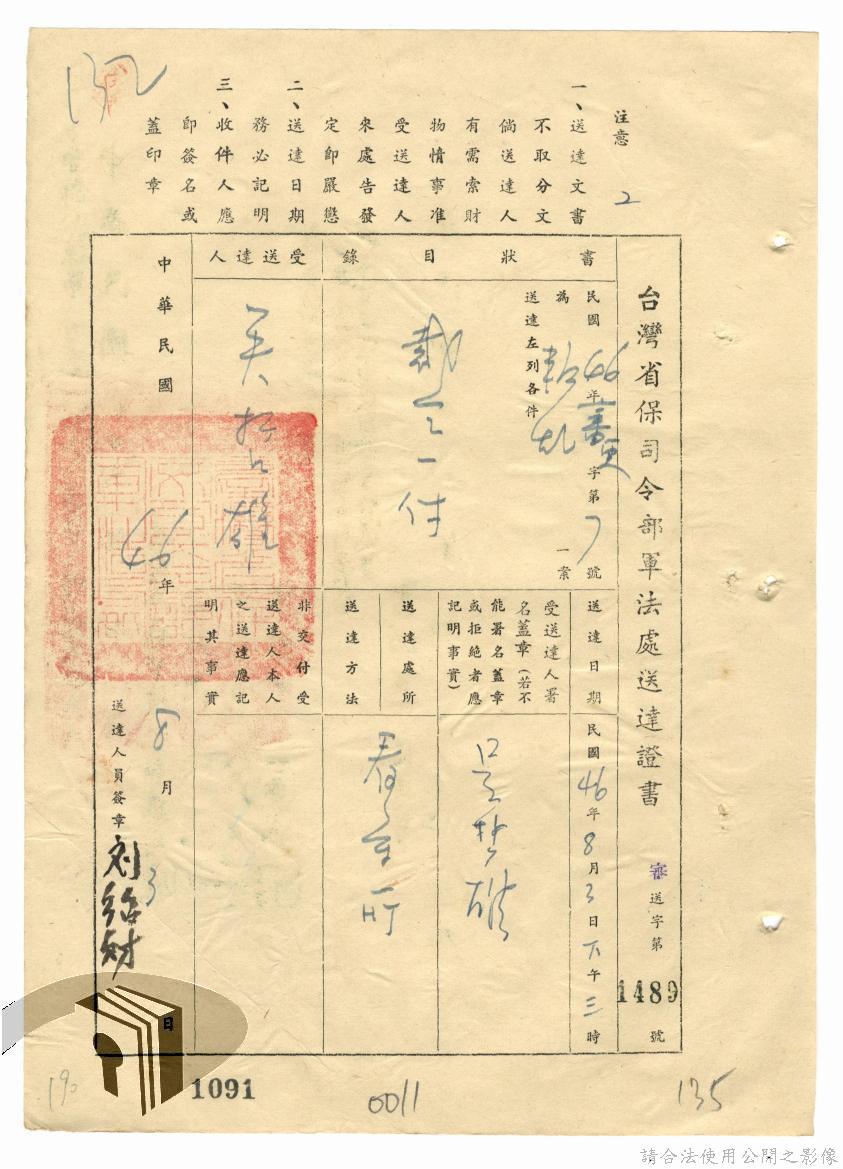 132
注意
2
一、送達文書
不取分文
倘送達人
有需索財
物情事准
受送達人
來處告發
定即嚴懲
二、送達日期
務必記明
三、收件人應
即簽名或
蓋印章
台灣省保司令部軍法處送達證書
審送字第1489號
書狀目錄
民國46年審更字第7號
為叛亂一案
送達左列各件
裁定一件
受送達人
吳哲雄
送達日期
民國46年8月3日下午三時
受送達人署
名蓋章(若不
能署名蓋章
或拒絕者應
記明事實)
吳哲雄
送達處所
看守所
送達方法
非交付受
送達人本人
之送達應記
明其事實
中華民國46年8月3日
送達人員簽章
1091
0011
135
190
請合法使用公開之影像